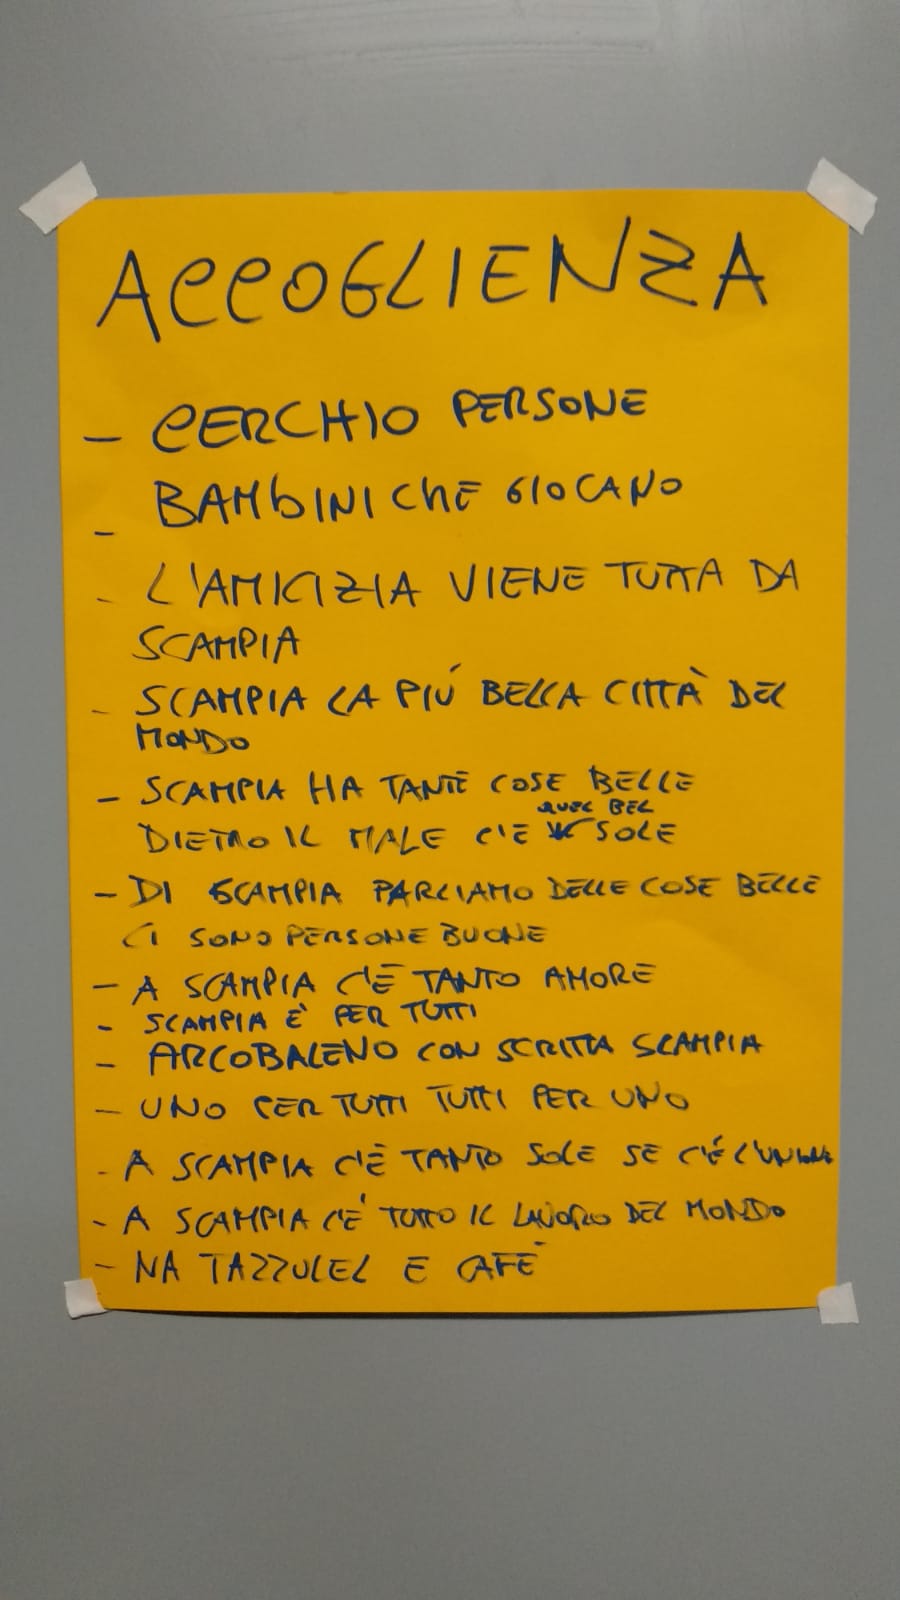 ACCOGLIENZA
- CERCHIO PERSONE
- BAMBINI CHE GIOCANO
- L'AMICIZIA VIENE TUTTA DA
SCAMPIA
- SCAMPIA LA PIÚ BELLA CITTÀ DEL
MONDO
- SCAMPIA HA TANTE COSE BELLE
DIETRO IL MALE C'È QUEL BEL SOLE
- DI SCAMPIA PARLIAMO DELLE COSE BELLE
CI SONO PERSONE BUONE
- A SCAMPIA C'È TANTO AMORE
- SCAMPIA È PER TUTTI
- ARCOBALENO CON SCRITTA SCAMPIA
- UNO PER TUTTI TUTTI PER UNO
- A SCAMPIA C'È TANTO SOLE SE C'É L'UNIONE
- A SCAMPIA C'E' TUTTO IL LAVORO DEL MONDO
- NA TAZZULEL E CAFÈ